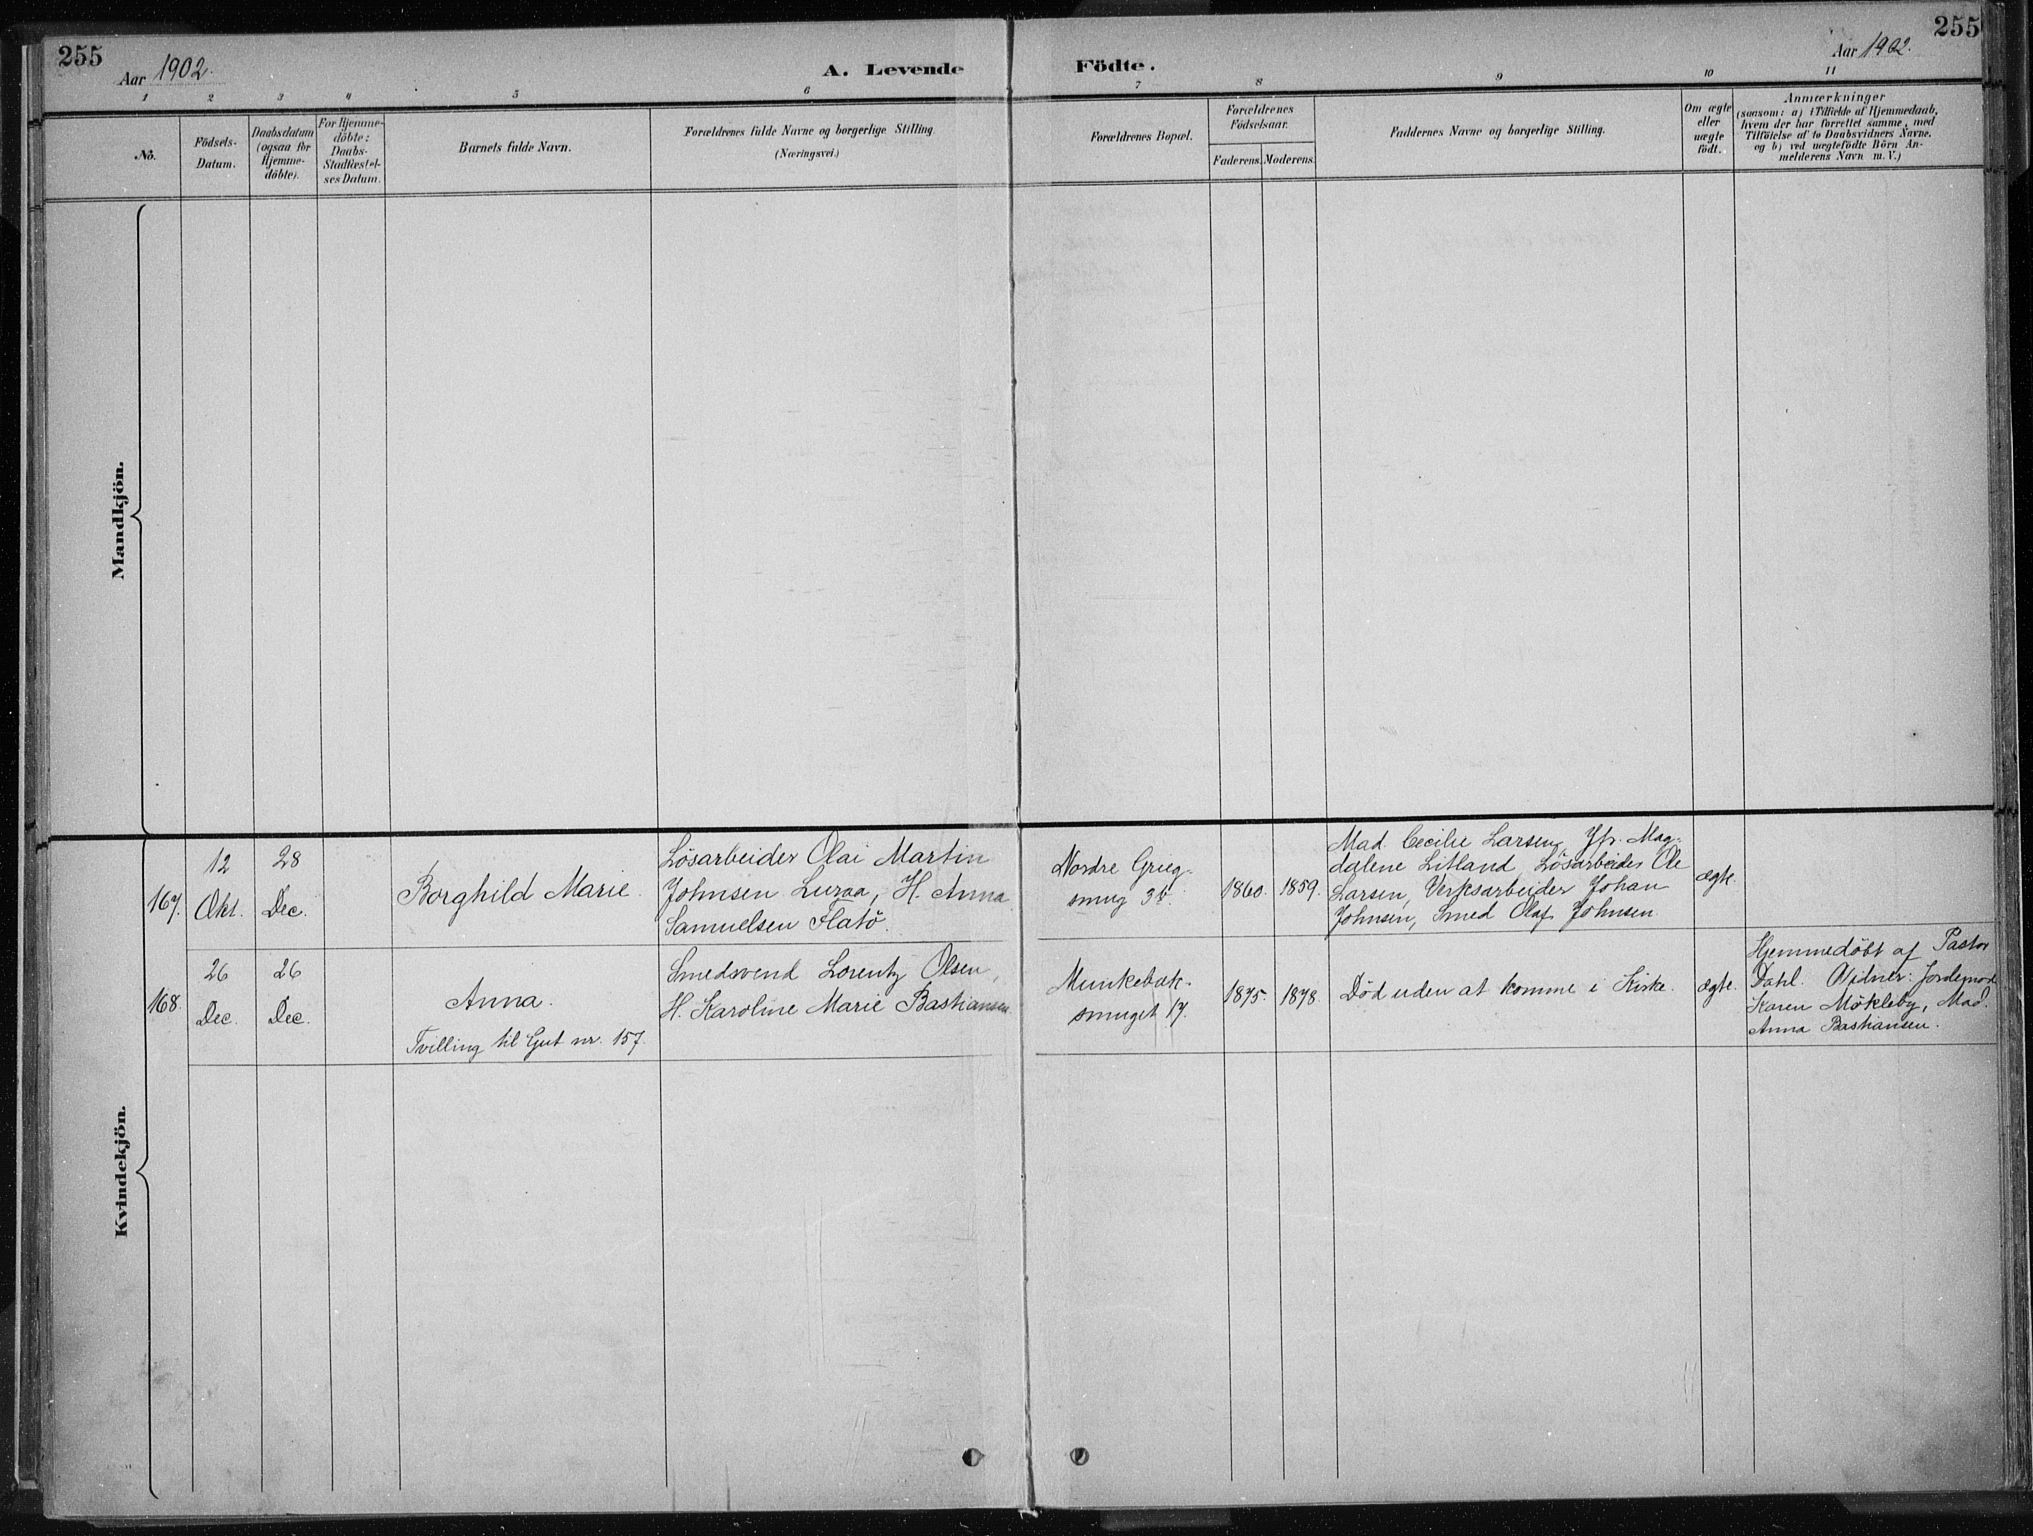 255
Aar 1902.
A. Levende Födte.
Aar 1902.
255
1 2 3 4 5 6 7 8 9 10 11
No.
Födsels-
Datum.
Daabsdatum
(ogsaa för
Hjemme-
döbte).
For Hjemme-
döbte:
Daabs-
Stadfæstel-
ses Datum.
Barnets fulde Navn.
Forældrenes fulde Navne og borgerlige Stilling.
(Næringsvei.)
Forældrenes Bopæl.
Forældrenes
Födselsaar.
Faderens. Moderens.
Faddernes Navne og borgerlige Stilling.
Om ægte
eller
uægte
födt.
Anmærkninger
(saasom: a) i Tilfælde af Hjemmedaab,
hvem der har forrettet samme, med
Tilföielse af to Daabsvidners Navne.
og b) ved uægtefödte Börn An-
melderens Navn m. V.)
Mandkjön.
Kvindekjön.
167.
12
Okt.
28
Dec.
Borghild Marie.
Løsarbeider Olai Martin
Johnsen Luraa, H. Anna
Samuelsen Flatö.
Nordre Grieg-
smug 3b.
1860. 1859.
Mad Cecilie Larsen, Jfr. Mag-
dalene Litland, Løsarbeider Ole
Larsen, Verksarbeider Johan
Johnsen, Smed Olaf Johnsen
ægte.
168.
26
Dec.
26
Dec.
Anna.
Tvilling til Gut nr. 157.
Smedsvend Lorentz Olsen,
H. Karoline Marie Bastiansen
Munkebæk-
smuget 17.
1875. 1878.
Död uden at komme i Kirke.
ægte.
Hjemmedöbt af Pastor
Dahl. Vidner: Jordemod.
Karen Mökleby, Mad.
Anna Bastiansen.